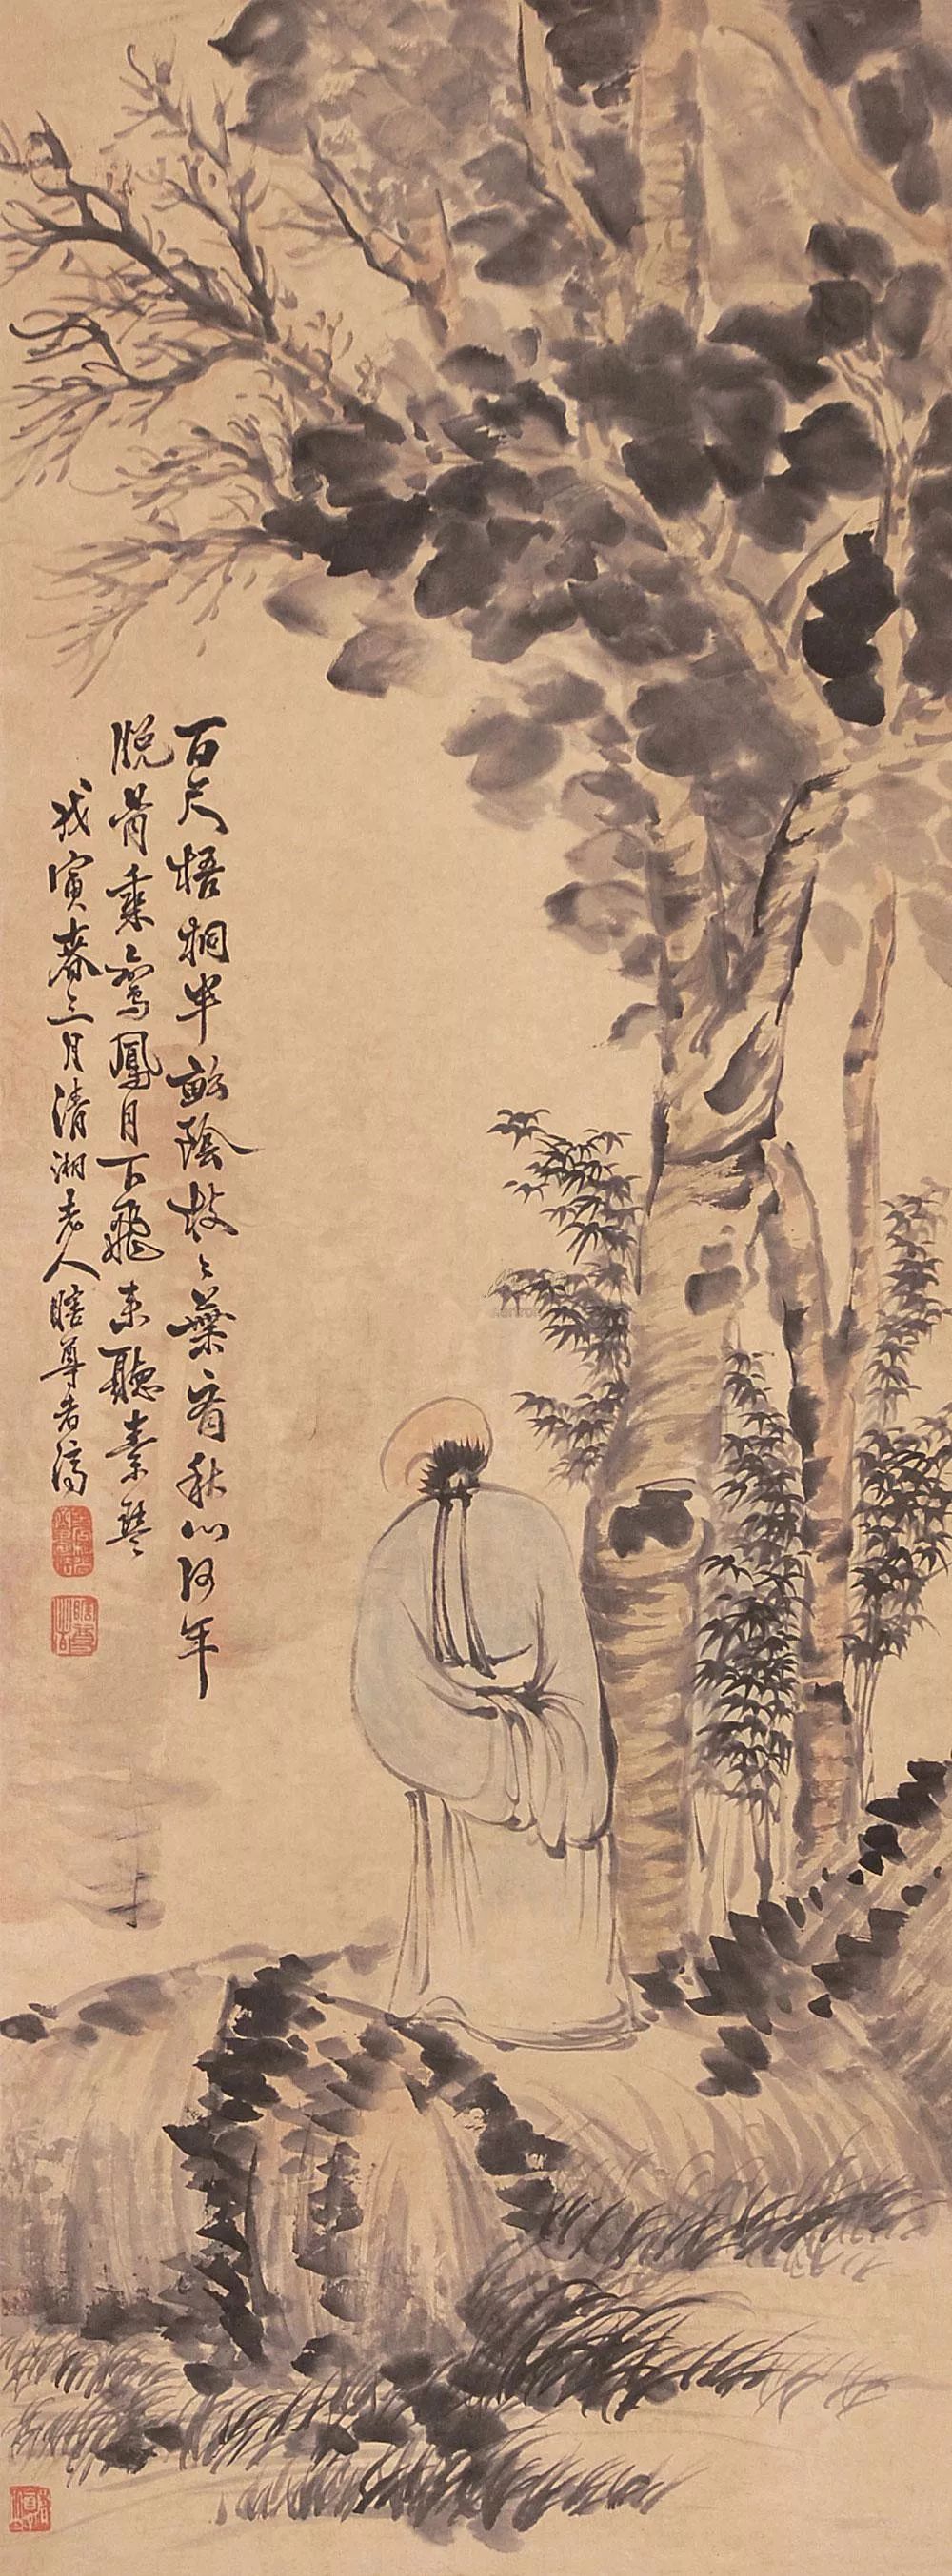 百尺梧桐半畝陰枝〻葉〻有秋心何年
脫骨乘鸞鳳月下飛來聽素琴
戊寅春三月清湘老人瞎尊者濟